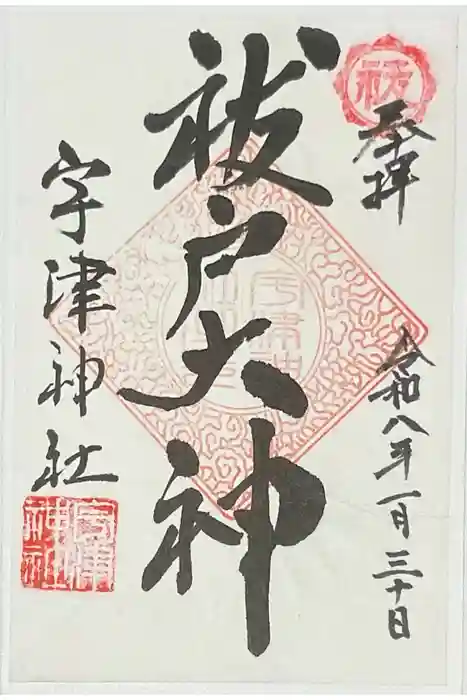 祓
奉拝
令和八年一月三十日
祓戸大神
宇津神社
宇津神社